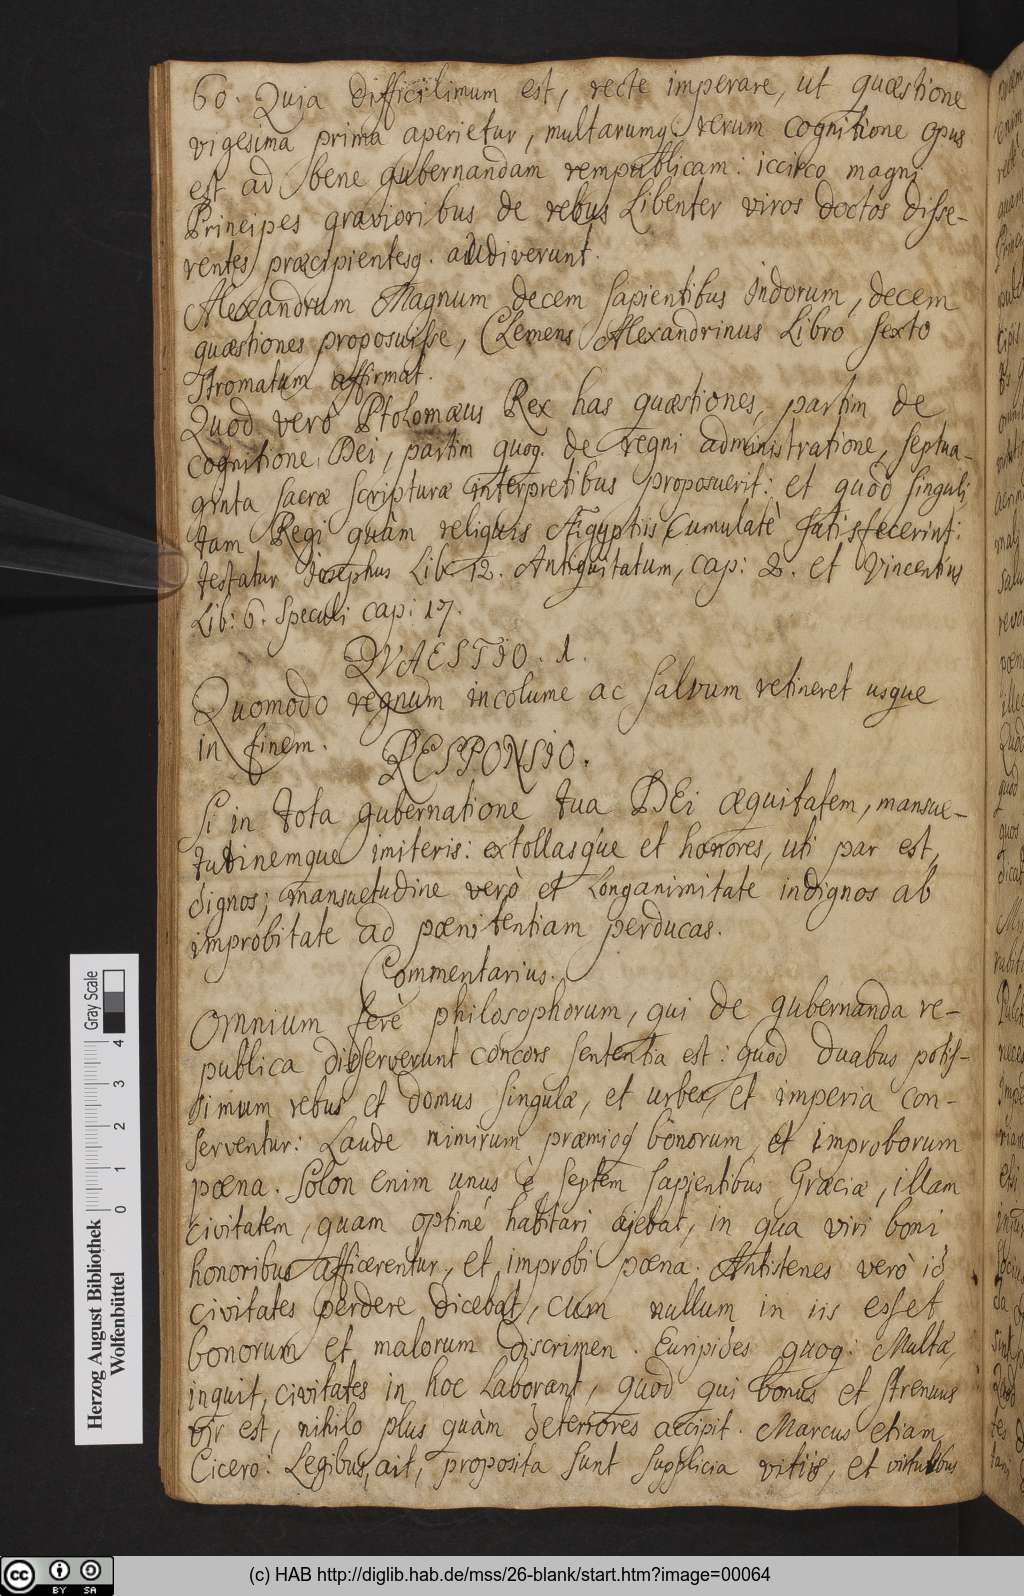 60. Quia difficilimum est, recte imperare, ut quæstione
vigesima prima aperietur, multarumq́ rerum cognitione opus
est ad bene gubernandam rempublicam: iccirco magni
Principes gravioribus de rebus Libenter viros doctos disse-
rentes præcipientesq. audiverunt.
Alexandrum Magnum decem sapientibus Indorum, decem
quæstiones proposuisse, Clemens Alexandrinus Libro sexto
Stromatum affirmat.
Quod vero Ptolomæus Rex has quæstiones, partim de
cognitione Dei, partim quoq. de regni administratione, septua-
ginta sacræ scripturæ interpretibus proposuerit: et quòd singuli
tam Regi quàm reliquis Ægyptiis cumulatè satisfecerint:
testatur Josephus Lib. 12. Antiquitatum, cap: 2. et Vincentius
Lib: 6. Speculi cap: 17.
QVAESTIO. 1.
Quomodo regnum incolume ac salvum retineret usque
in finem.
RESPONSIO.
Si in tota gubernatione tua DEi æquitatem, mansue-
tudinemque imiteris: extollasque et honores, uti par est,
dignos; mansuetudine verò et Longanimitate indignos ab
improbitate ad pœnitentiam perducas.
Commentarius.
Omnium ferè philosophorum, qui de gubernanda re-
publica disserverunt concors sententia est: quòd duabus potis-
simum rebus et domus singulæ, et urbes, et imperia con-
serventur: Laude nimirum præmioq́ bonorum, et improborum
pœna. Solon enim unus è septem sapientibus Græciæ, illam
civitatem, quam optimè habitari ajebat, in qua viri boni
honoribus afficerentur, et improbi pœna. Antistenes verò id
civitates perdere dicebat, cum nullum in iis esset
bonorum et malorum discrimen. Euripides quoq: Multæ,
inquit, civitates in hoc Laborant, quòd qui bonus et strenuus
vir est, nihilo plus quàm deteriores accipit. Marcus etiam
Cicero: Legibus, ait, proposita sunt supplicia vitiis, et virtutibus
Herzog August Bibliothek
Wolfenbüttel
0 1 2 3 4
Gray Scale
(c) HAB http://diglib.hab.de/mss/26-blank/start.htm?image=00064